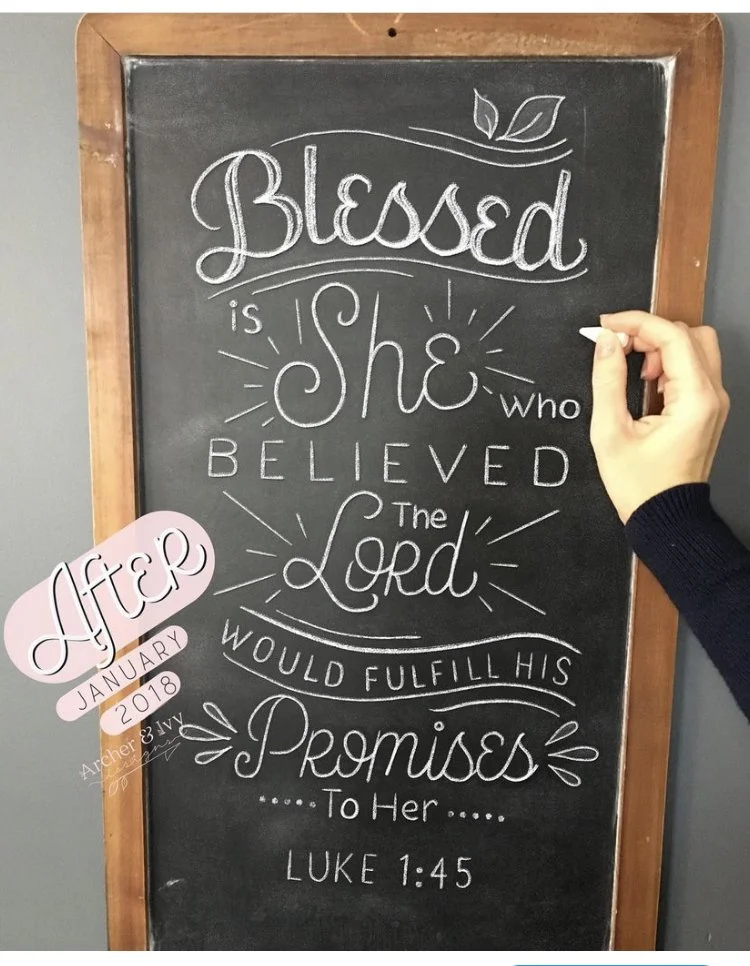 Blessed
is She who
BELIEVED
The
Lord
WOULD FULFILL HIS
Promises
To Her
LUKE 1:45
After
JANUARY
2018
Archer & Ivy
designs